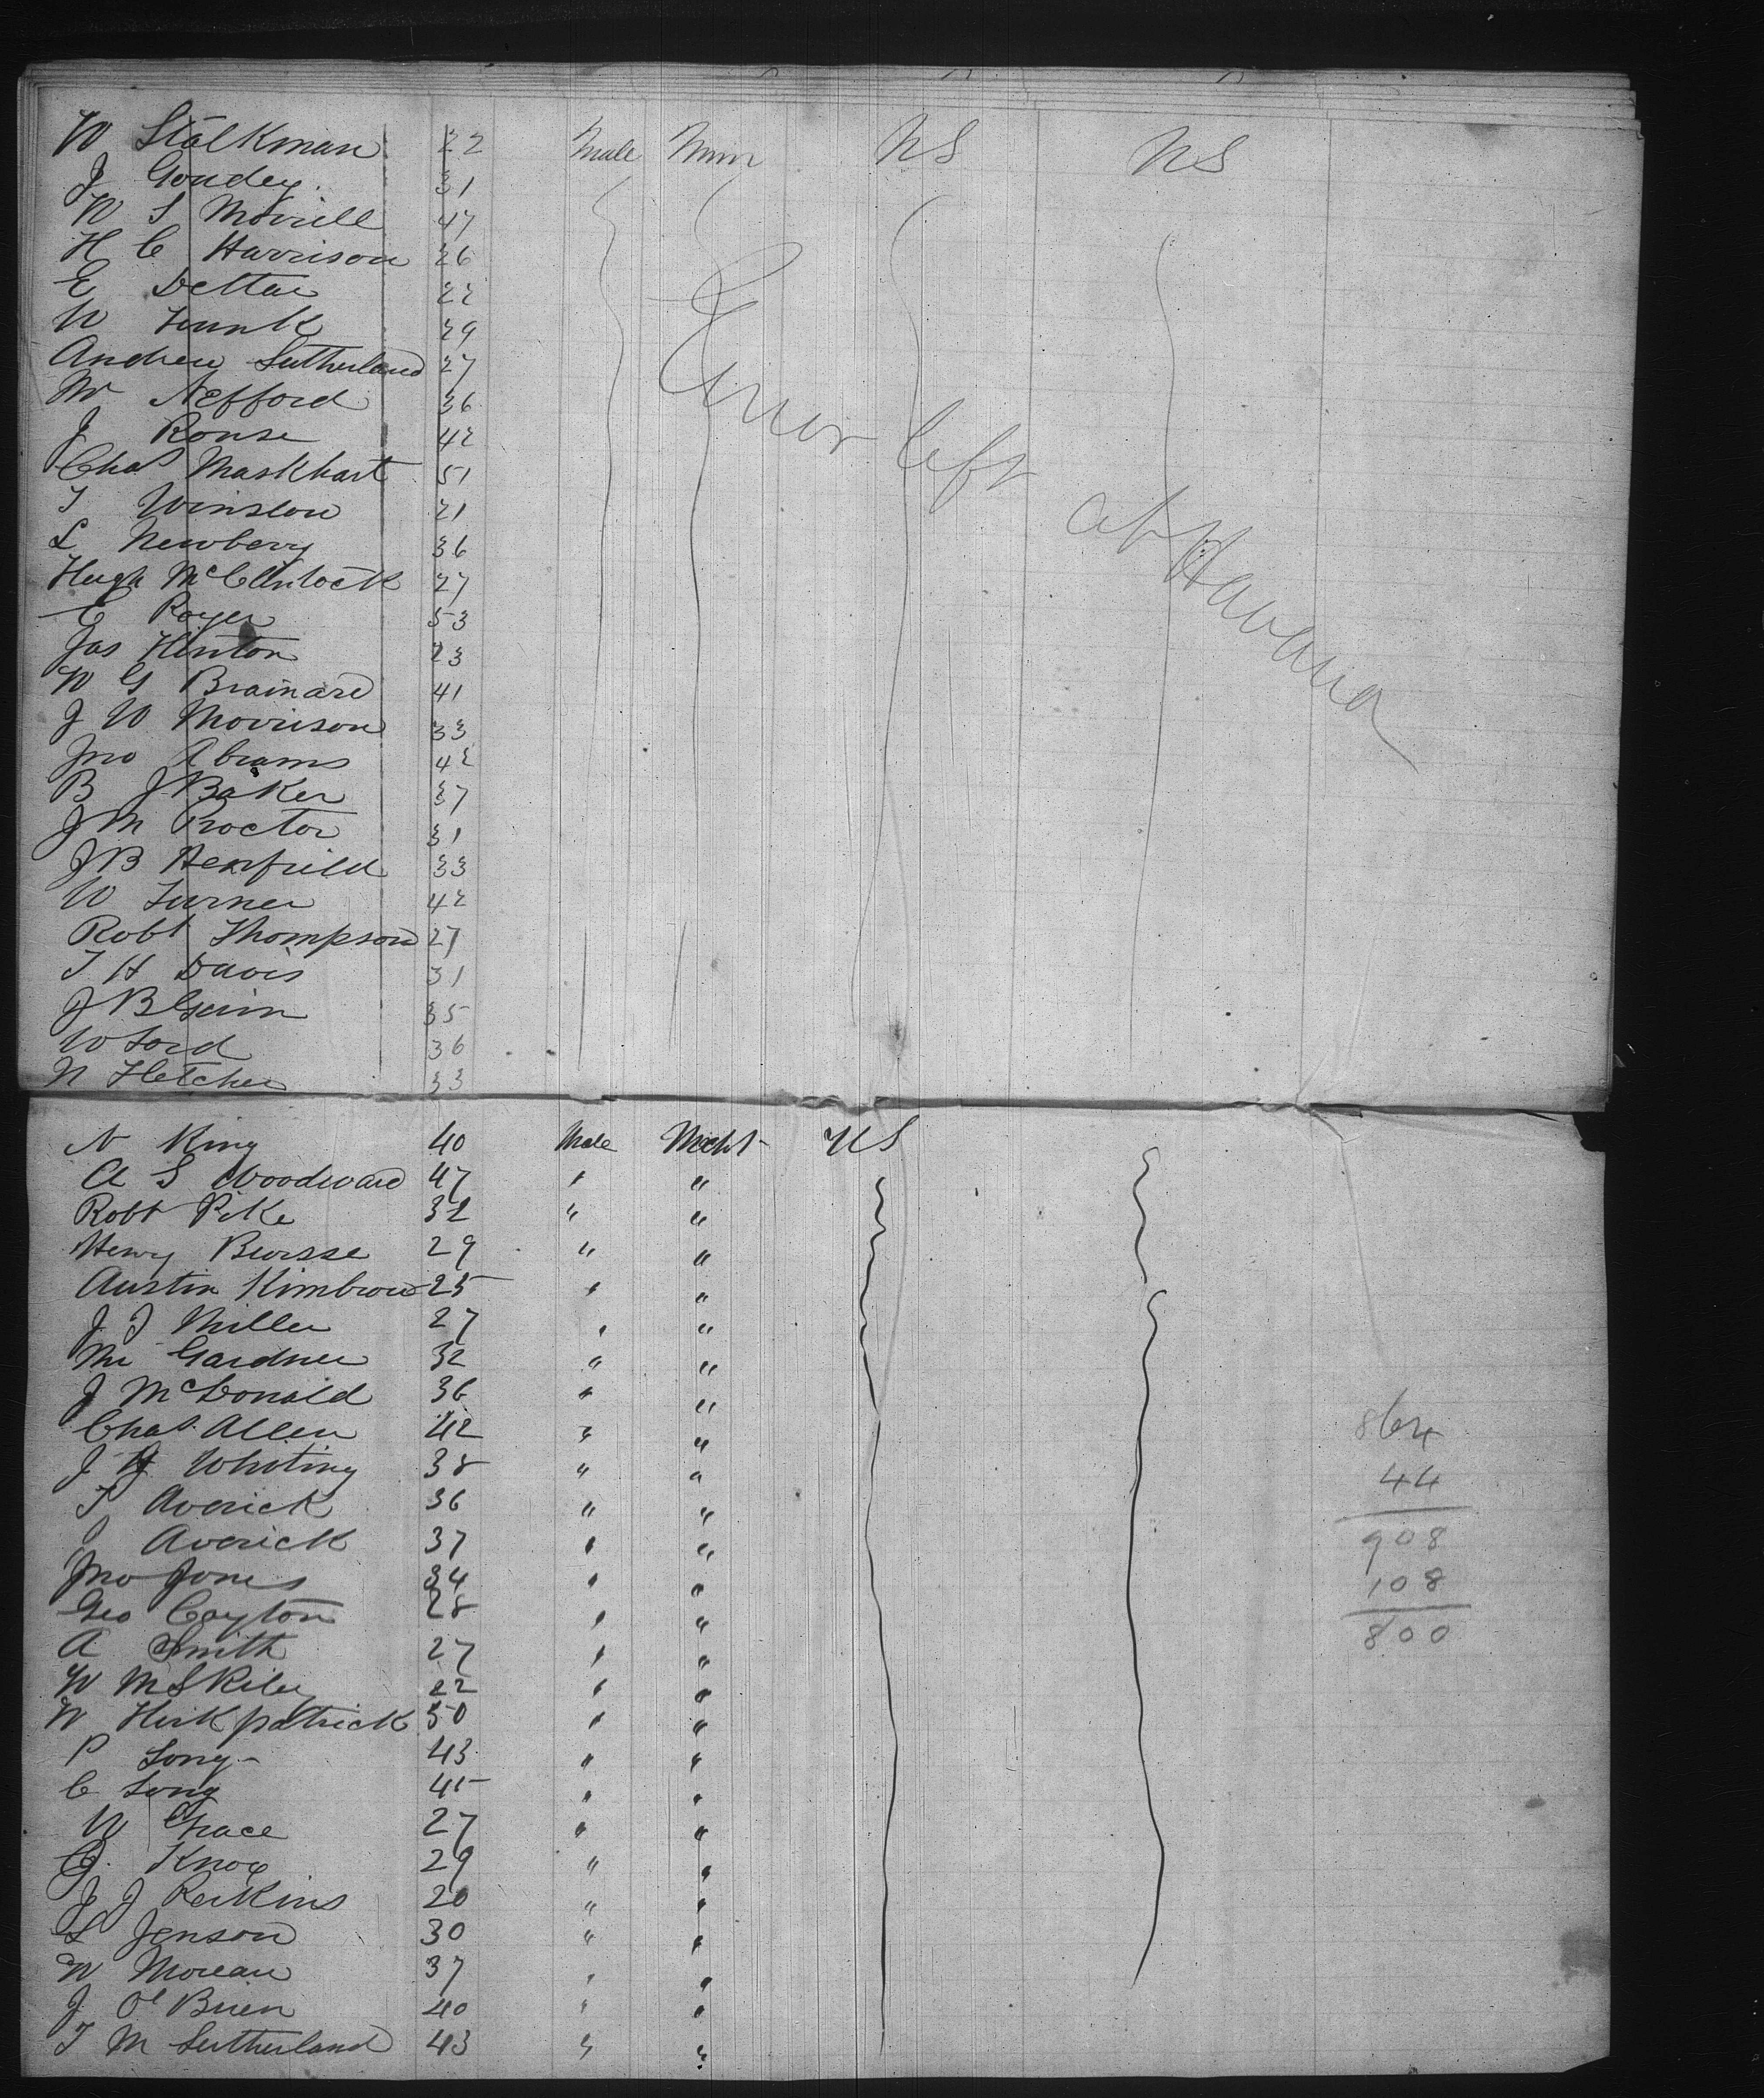 W Stalkman 22 Male Mim US US
J Goudey 31
W S Morrill 47
H C Harrison 26
E Deltae 22
W Funk 29
Andrew Sutherland 27
Mr Nefford 36
J Rouse 42
Chas Maskhart 51
T Winslow 21
L Newberry 36
Hugh McClintock 27
E Royer 53
Jas Hinton 23
W G Brainard 41
J W Morrison 33
Jno Abrams 42
B J Baker 37
J M Proctor 31
J B Henfield 33
W Turner 42
Robt Thompson 27
T H Davis 31
J B Gwin 35
W Ford 36
N Fletcher 33
Error left at Havana
N King 40 Male Mecht US
A S Woodward 47 " "
Robt Pike 32 " "
Henry Bursse 29 " "
Austin Kimbrow 25 " "
J J Miller 27 " "
Mr Gardner 32 " "
J McDonald 36 " "
Chas Allen 42 " "
J H Whiting 38 " "
T Averick 36 " "
J Averick 37 " "
Jno Jones 34 " "
Geo Cayton 28 " "
A Smith 27 " "
W M S Riley 22 " "
W Kirkpatrick 50 " "
P Long 43 " "
C Long 45 " "
W Grace 27 " "
G. Knox 29 " "
J J Perkins 20 " "
L Jenson 30 " "
W Moreau 37 " "
J O'Brien 40 " "
T M Sutherland 43 " "
864
44
908
108
800